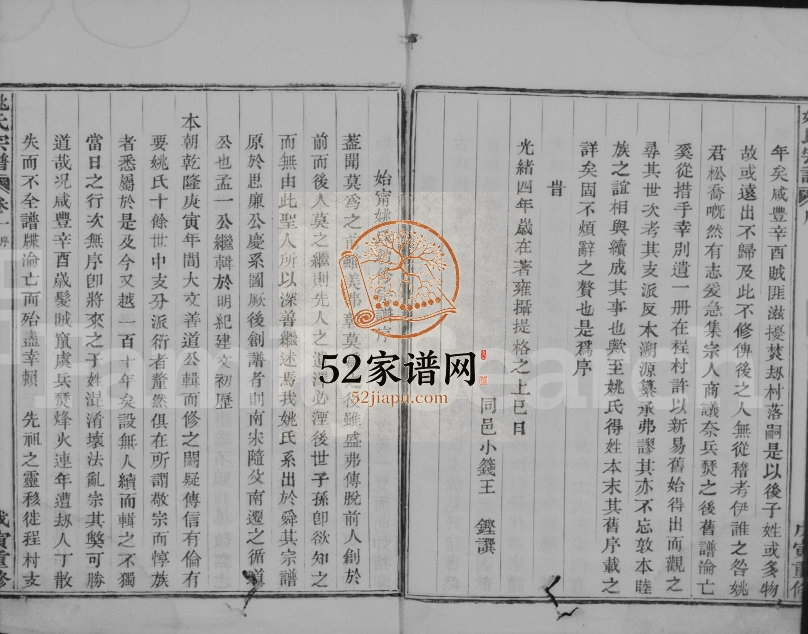 年矣咸豐辛酉賊匪滋擾焚刼村落嗣是以後子姓或多物
故或遠出不歸及此不修俾後之人無從稽考伊誰之咎姚
君松喬嘅然有志爰急集宗人商議奈兵燹之後舊譜淪亡
奚從措手幸別遺一册在桯村許以新易舊始得出而觀之
尋其世次考其支派反本溯源纂承弗謬其亦不忘敦本睦
族之誼相與續成其事也歟至姚氏得姓本末其舊序載之
詳矣固不煩辭之贅也是爲序
旹
光緒四年歲在著雍攝提格之上巳日
同邑小篯王 鏗譔
始甯姚氏
序
蓋聞莫爲之前雖美弗
後雖盛弗傳脫前人創於
前而後人莫之繼則先人之
必湮後世子孫卽欲知之
而無由此聖人所以深善繼述焉我姚氏系出於舜其宗譜
原於思廉公慶系圖厥後創譜者則南宋隨父南遷之循道
公也孟一公繼輯於明紀建文初歷
本朝乾隆庚寅年間大文善道公輯而修之闕疑傳信有倫有
要姚氏十餘世中支分派衍者釐然俱在所謂敬宗而惇族
者悉屬於是及今又越一百十年矣設無人續而輯之不獨
當日之行次無序卽將來之子姓混淆壞法亂宗其斃可勝
道哉况咸豐辛酉歲髮賊竄虞兵燹烽火連年遭刼人丁散
失而不全譜牒淪亡而殆盡幸賴 先祖之靈移徙程村支
姚氏宗譜 卷一 序
戊寅重修
戊寅重修
52家谱网
52jiapu.com